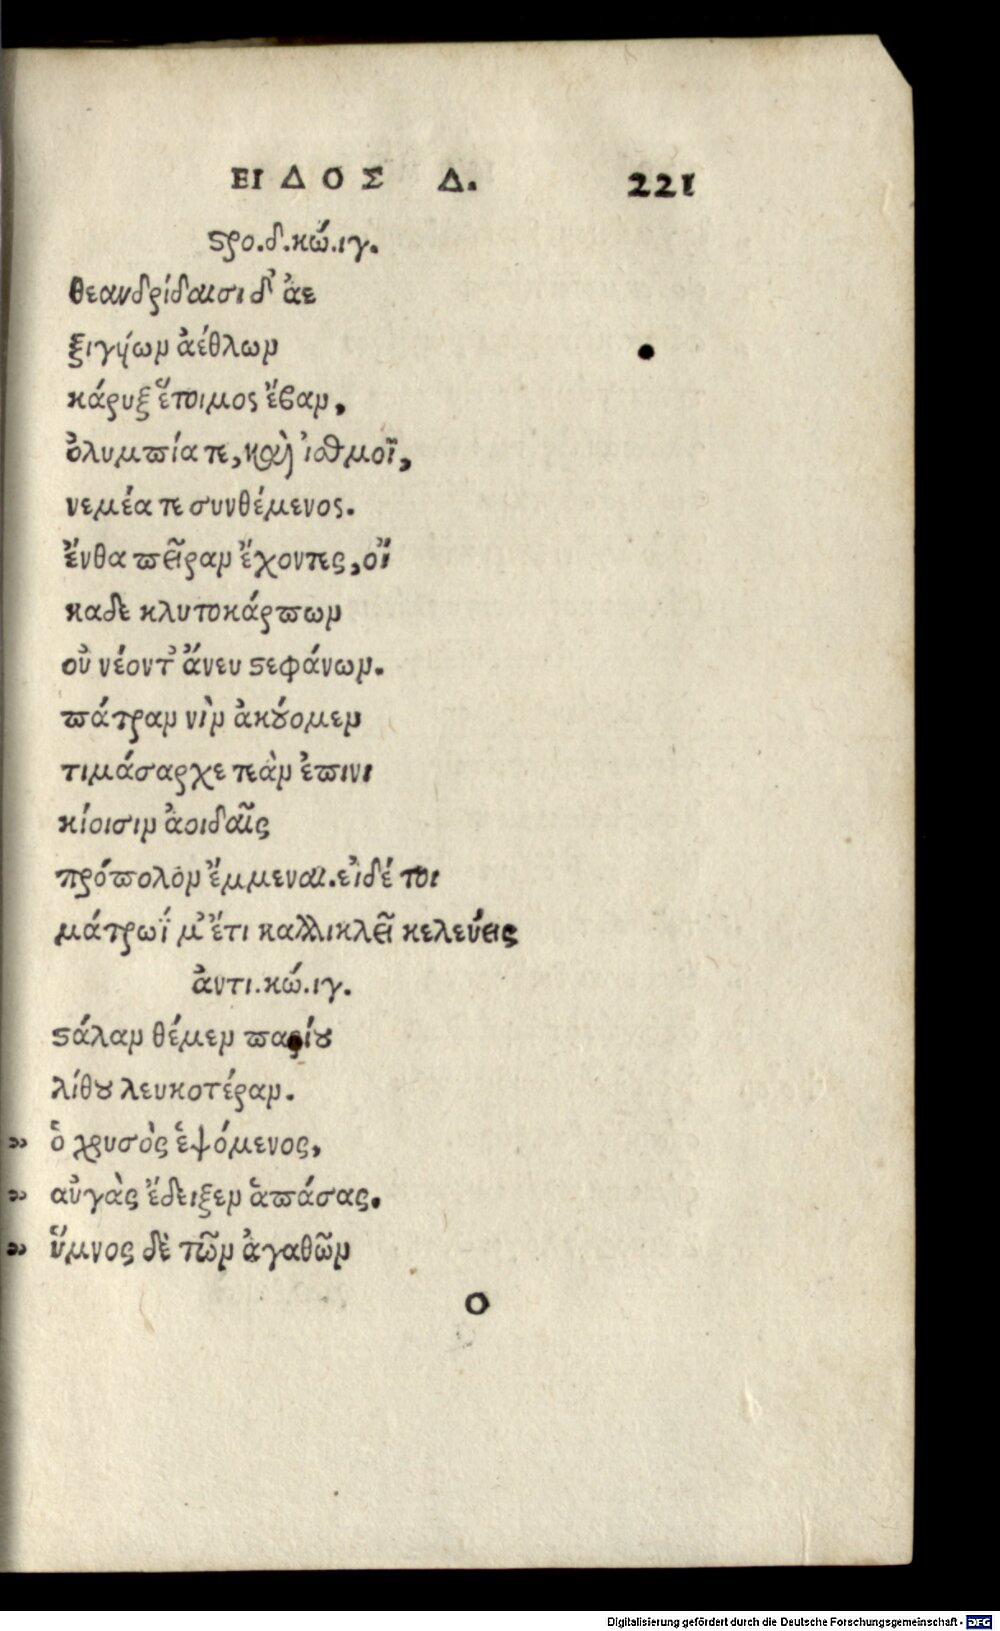 ΕΙΔΟΣ Δ. 221
ϛρο.δ.κώ.ιγ.
θεανδρίδαισι δ' ἀε
ξιγύων ἀέθλων
κάρυξ ἕτοιμος ἔβαν,
ὀλυμπία τε, καὶ ἰσθμοῖ,
νεμέα τε συνθέμενος.
ἔνθα πεῖραν ἔχοντες, οἴ
καδε κλυτοκάρπων
οὐ νέοντ' ἄνευ ϛεφάνων.
πάτραν νὶν ἀκούομεν
τιμάσαρχε τεὰν ἐπινι
κίοισιν ἀοιδαῖς
πρόπολον ἔμμεναι. εἰ δέ τοι
μάτρωΐ μ' ἔτι καλλικλεῖ κελεύεις
ἀντι.κώ.ιγ.
ϛάλαν θέμεν παρίου
λίθου λευκοτέραν.
„ ὁ χρυσὸς ἑψόμενος,
„ αὐγὰς ἔδειξεν ἁπάσας.
„ ὕμνος δὲ τῶν ἀγαθῶν
O
Digitalisierung gefördert durch die Deutsche Forschungsgemeinschaft - DFG